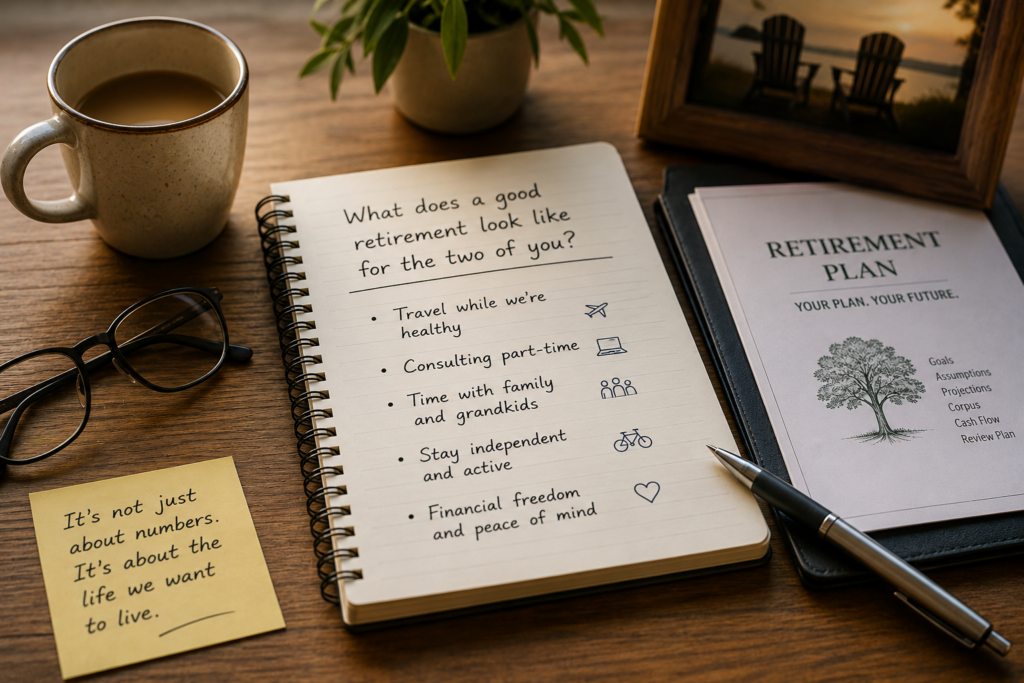 What does a good
retirement look like
for the two of you?
• Travel while we're
healthy
• Consulting part-time
• Time with family
and grandkids
• Stay independent
and active
• Financial freedom
and peace of mind
It's not just
about numbers.
It's about the
life we want
to live.
RETIREMENT
PLAN
YOUR PLAN. YOUR FUTURE.
Goals
Assumptions
Projections
Corpus
Cash Flow
Review Plan